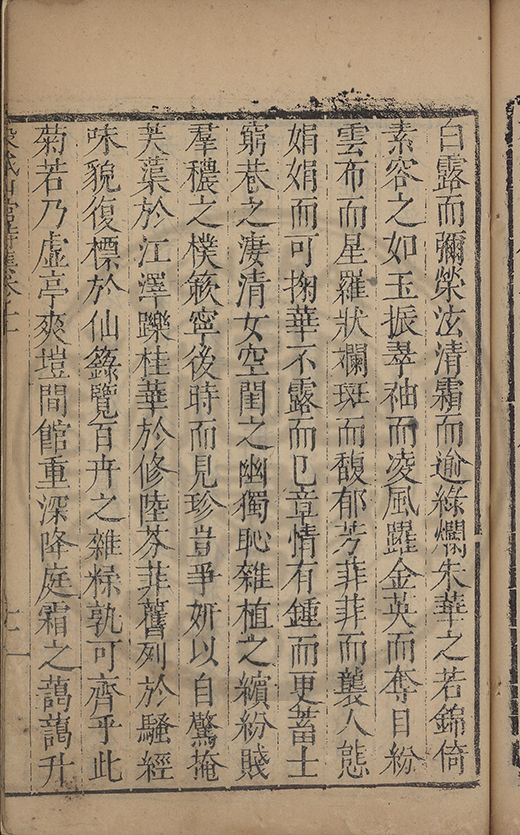 白露而彌榮泫清霜而逾綠爛朱華之若錦倚
素容之如玉振翠袖而凌風躍金英而奪目紛
雲布而星羅狀斕斑而馥郁芳菲菲而襲人態
娟娟而可掬華不露而已章情有鍾而更蓄士
窮巷之淒清女空閨之幽獨恥雜植之繽紛賤
羣穠之樸簌寧後時而見珍豈爭妍以自驚掩
芙蕖於江澤躒桂華於修陸芬菲舊列於騷經
味貌復標於仙籙覽百卉之雜糅孰可齊乎此
菊若乃虛亭爽塏間館重深降庭霜之藹藹升